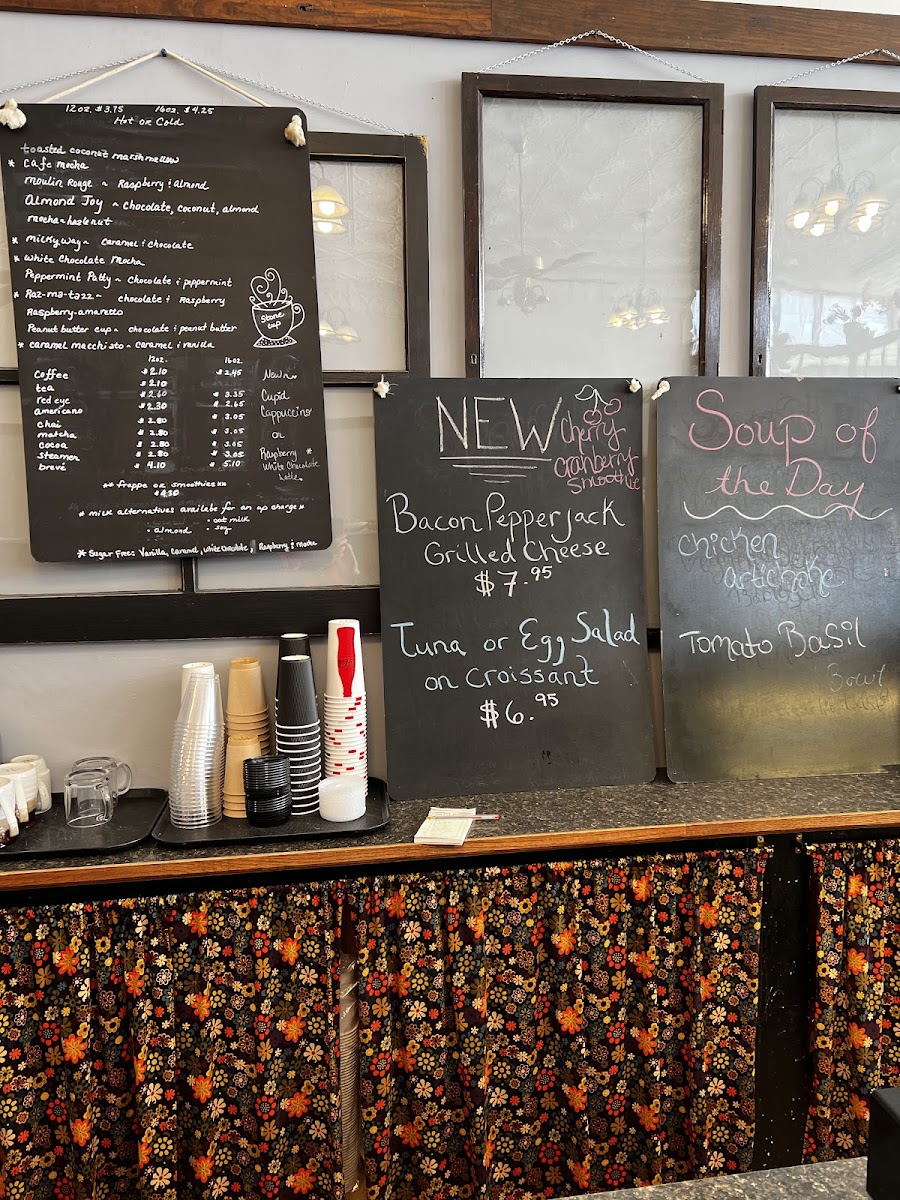 12oz. $3.75 16oz. $4.25
Hot or Cold
toasted coconut marshmellow
* Cafe mocha
moulin Rouge ~ Raspberry & almond
Almond Joy ~ Chocolate, coconut, almond
mocha ~ hazlenut
* milky way ~ caramel & chocolate
* White Chocolate Mocha
Peppermint Patty ~ Chocolate & peppermint
* Raz-ma-tazz ~ chocolate & Raspberry
Raspberry-amaretto
Peanut butter cup ~ chocolate & peanut butter
* caramel macchiato ~ caramel & vanilla
Stone Cup
12oz. 16oz.
Coffee $2.10 $2.45
tea $2.10
red eye $2.60 $3.35
americano $2.30 $2.65
chai $2.80 $3.05
matcha $2.80 $3.05
cocoa $2.80 $3.05
steamer $2.80 $3.05
brevé $4.10 $5.10
New ~
Cupid
Cappuccino
or
Raspberry *
White Chocolate
latte
** frappe or smoothies **
$4.30
* milk alternatives available for an up charge *
· almond · oat milk
· soy
* Sugar Free: Vanilla, Caramel, White Chocolate, Raspberry & Mocha
NEW
Cherry
Cranberry
Smoothie
Bacon Pepperjack
Grilled Cheese
$7.95
Tuna or Egg Salad
on Croissant
$6.95
Soup of
the Day
Chicken
artichoke
Tomato Basil
Bowl